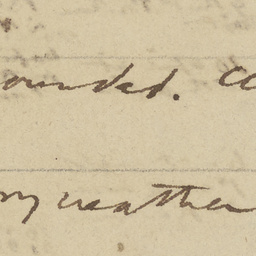 ounded. Cl
ny weather